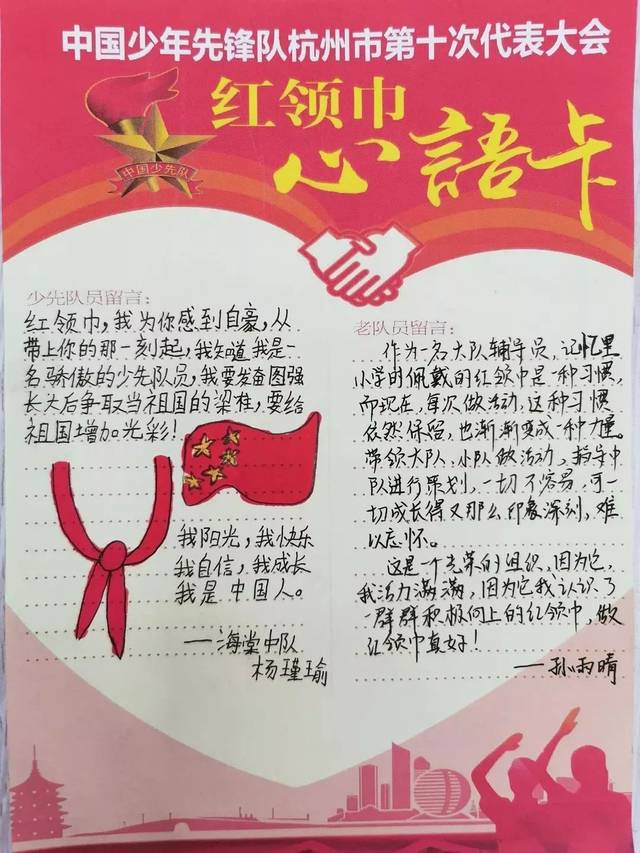 中国少年先锋队杭州市第十次代表大会
红领巾
心語卡
中国少先队
少先队员留言：
红领巾，我为你感到自豪，从
带上你的那一刻起，我知道我是一
名骄傲的少先队员，我要发奋图强
长大后争取当祖国的梁柱，要给
祖国增加光彩！
我阳光，我快乐
我自信，我成长
我是中国人。
——海棠中队
杨瑾瑜
老队员留言：
作为一名大队辅导员，记忆里
小学时佩戴的红领巾是一种习惯，
而现在，每次做活动，这种习惯
依然保留，也渐渐变成一种力量。
带领大队、小队做活动，指导中
队进行策划，一切不容易，可一
切成长得又那么印象深刻，难
以忘怀。
这是一个光荣的组织，因为它，
我活力满满，因为它我认识了
一群群积极向上的红领巾，做
红领巾真好！
——孙雨晴